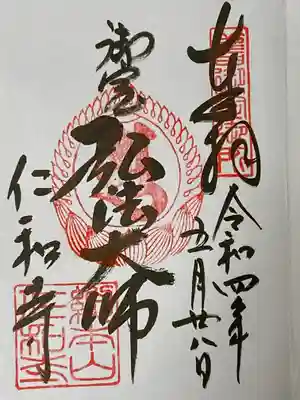 奉拝
令和四年
五月廿八日
御室
弘法大師
仁和寺